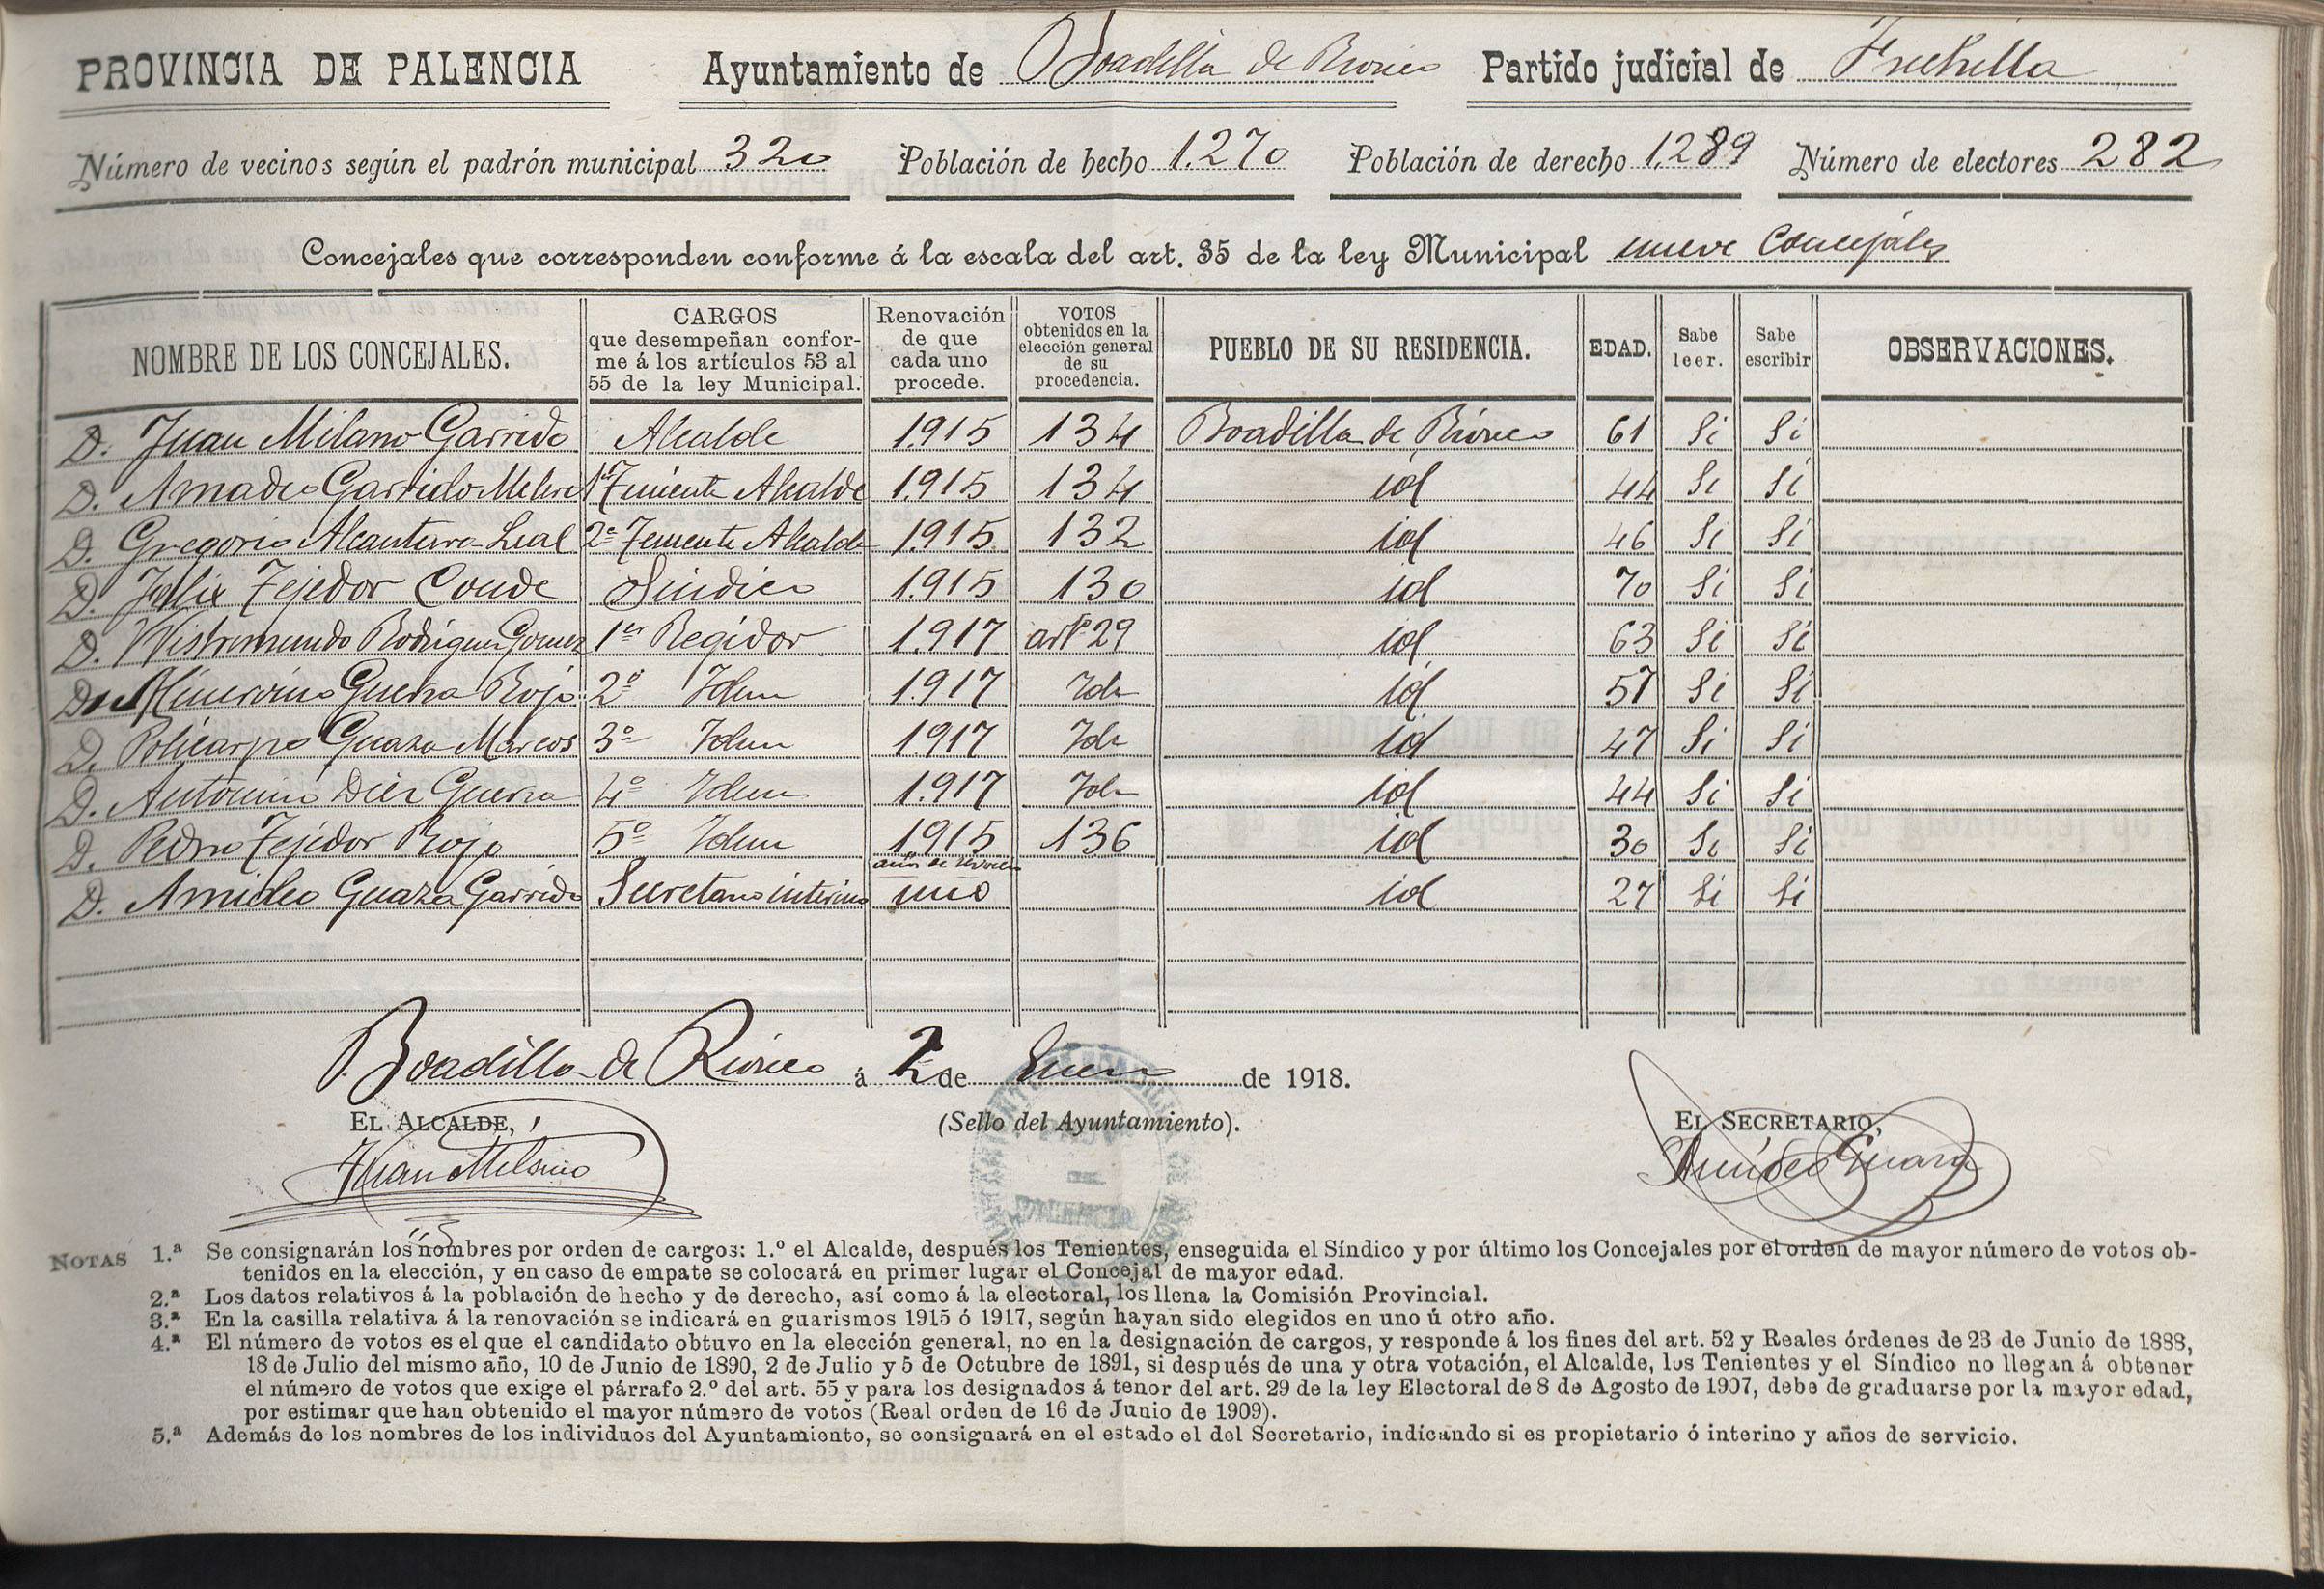 PROVINCIA DE PALENCIA Ayuntamiento de Boadilla de Rioseco Partido judicial de Frechilla
Número de vecinos según el padrón municipal 320 Población de hecho 1.270 Población de derecho 1.289 Número de electores 282
Concejales que corresponden conforme á la escala del art. 35 de la ley Municipal nueve Concejales
NOMBRE DE LOS CONCEJALES. CARGOS que desempeñan conforme á los artículos 53 al 55 de la ley Municipal. Renovación de que cada uno procede. VOTOS obtenidos en la elección general de su procedencia. PUEBLO DE SU RESIDENCIA. EDAD. Sabe leer. Sabe escribir OBSERVACIONES.
D. Juan Milano Garrido Alcalde 1915 134 Boadilla de Rioseco 61 Si Si
D. Amadeo Garrido 1er Teniente Alcalde 1.915 134 id 44 Si Si
D. Gregorio Alcantara Leal 2º Teniente Alcalde 1.915 132 id 46 Si Si
D. Felix Tejedor Conde Sindico 1.915 130 id 70 Si Si
D. Wistremundo Rodriguez Gomez 1er Regidor 1.917 artº 29 id 63 Si Si
D. Minervino Guerra Rojo 2º Idem 1.917 Idm id 57 Si Si
D. Policarpo Guaza Marcos 3º Idem 1917 Idm id 47 Si Si
D. Antonino Diez Guerra 4º Idem 1.917 Idm id 44 Si Si
D. Pedro Tejedor Rojo 5º Idem 1915 136 id 30 Si Si
años de servicio
D. Amideo Guaza Garrido Secretario interino uno id 27 Si Si
Boadilla de Rioseco á 2 de Enero de 1918.
EL ALCALDE, (Sello del Ayuntamiento). EL SECRETARIO,
Juan Milano Amídeo Guaza
NOTAS 1.ª Se consignarán los nombres por orden de cargos: 1.º el Alcalde, después los Tenientes, enseguida el Síndico y por último los Concejales por el orden de mayor número de votos ob-
tenidos en la elección, y en caso de empate se colocará en primer lugar el Concejal de mayor edad.
2.ª Los datos relativos á la población de hecho y de derecho, así como á la electoral, los llena la Comisión Provincial.
3.ª En la casilla relativa á la renovación se indicará en guarismos 1915 ó 1917, según hayan sido elegidos en uno ú otro año.
4.ª El número de votos es el que el candidato obtuvo en la elección general, no en la designación de cargos, y responde á los fines del art. 52 y Reales órdenes de 23 de Junio de 1888,
18 de Julio del mismo año, 10 de Junio de 1890, 2 de Julio y 5 de Octubre de 1891, si después de una y otra votación, el Alcalde, los Tenientes y el Síndico no llegan á obtener
el número de votos que exige el párrafo 2.º del art. 55 y para los designados á tenor del art. 29 de la ley Electoral de 8 de Agosto de 1907, debe de graduarse por la mayor edad,
por estimar que han obtenido el mayor número de votos (Real orden de 16 de Junio de 1909).
5.ª Además de los nombres de los individuos del Ayuntamiento, se consignará en el estado el del Secretario, indicando si es propietario ó interino y años de servicio.